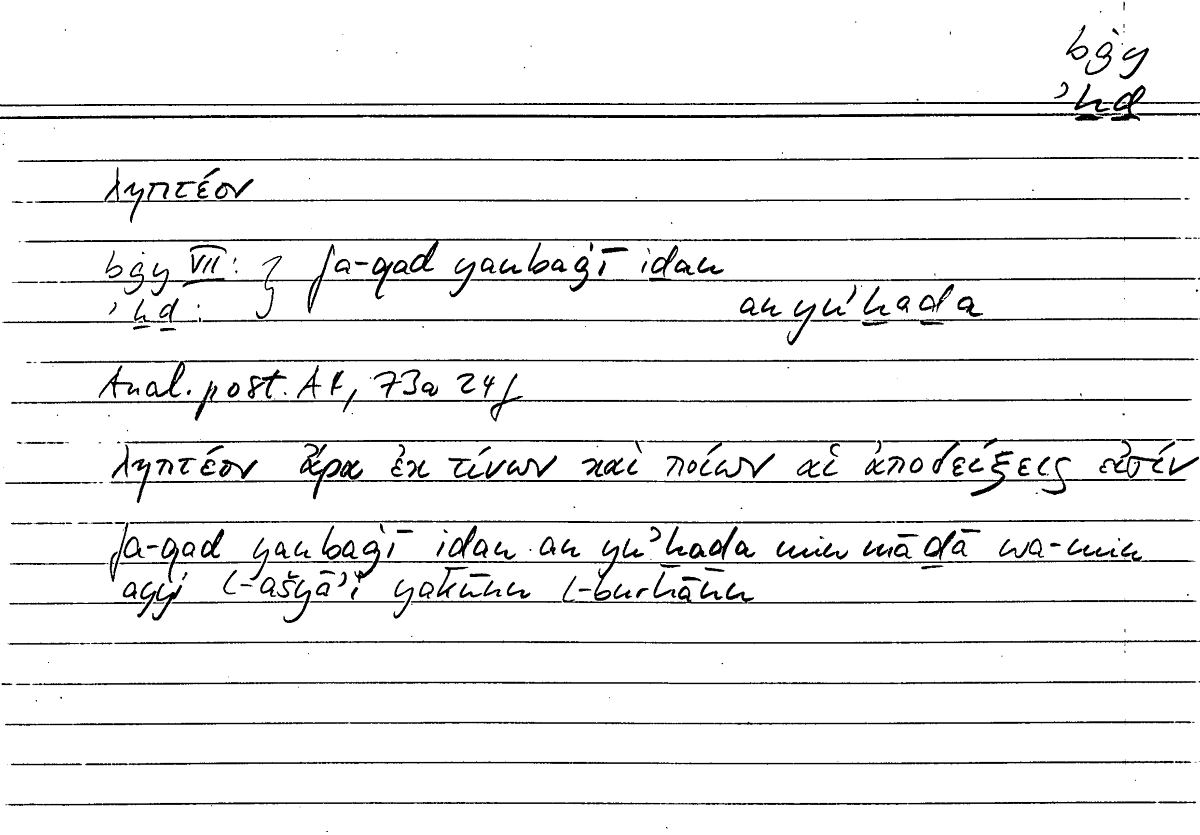 bġy
ʾḫḏ
ληπτέον
bġy VII: } fa-qad yanbaġī iḏan
ʾḫḏ: an yuʾḫaḏa
Anal. post. A4, 73a 24f
ληπτέον ἄρα ἐκ τίνων καὶ ποίων αἱ ἀποδείξεις εἰσίν
fa-qad yanbaġī iḏan an yuʾḫaḏa min māḏā wa-min
ayyi l-ašyāʾi yakūnu l-burhānu